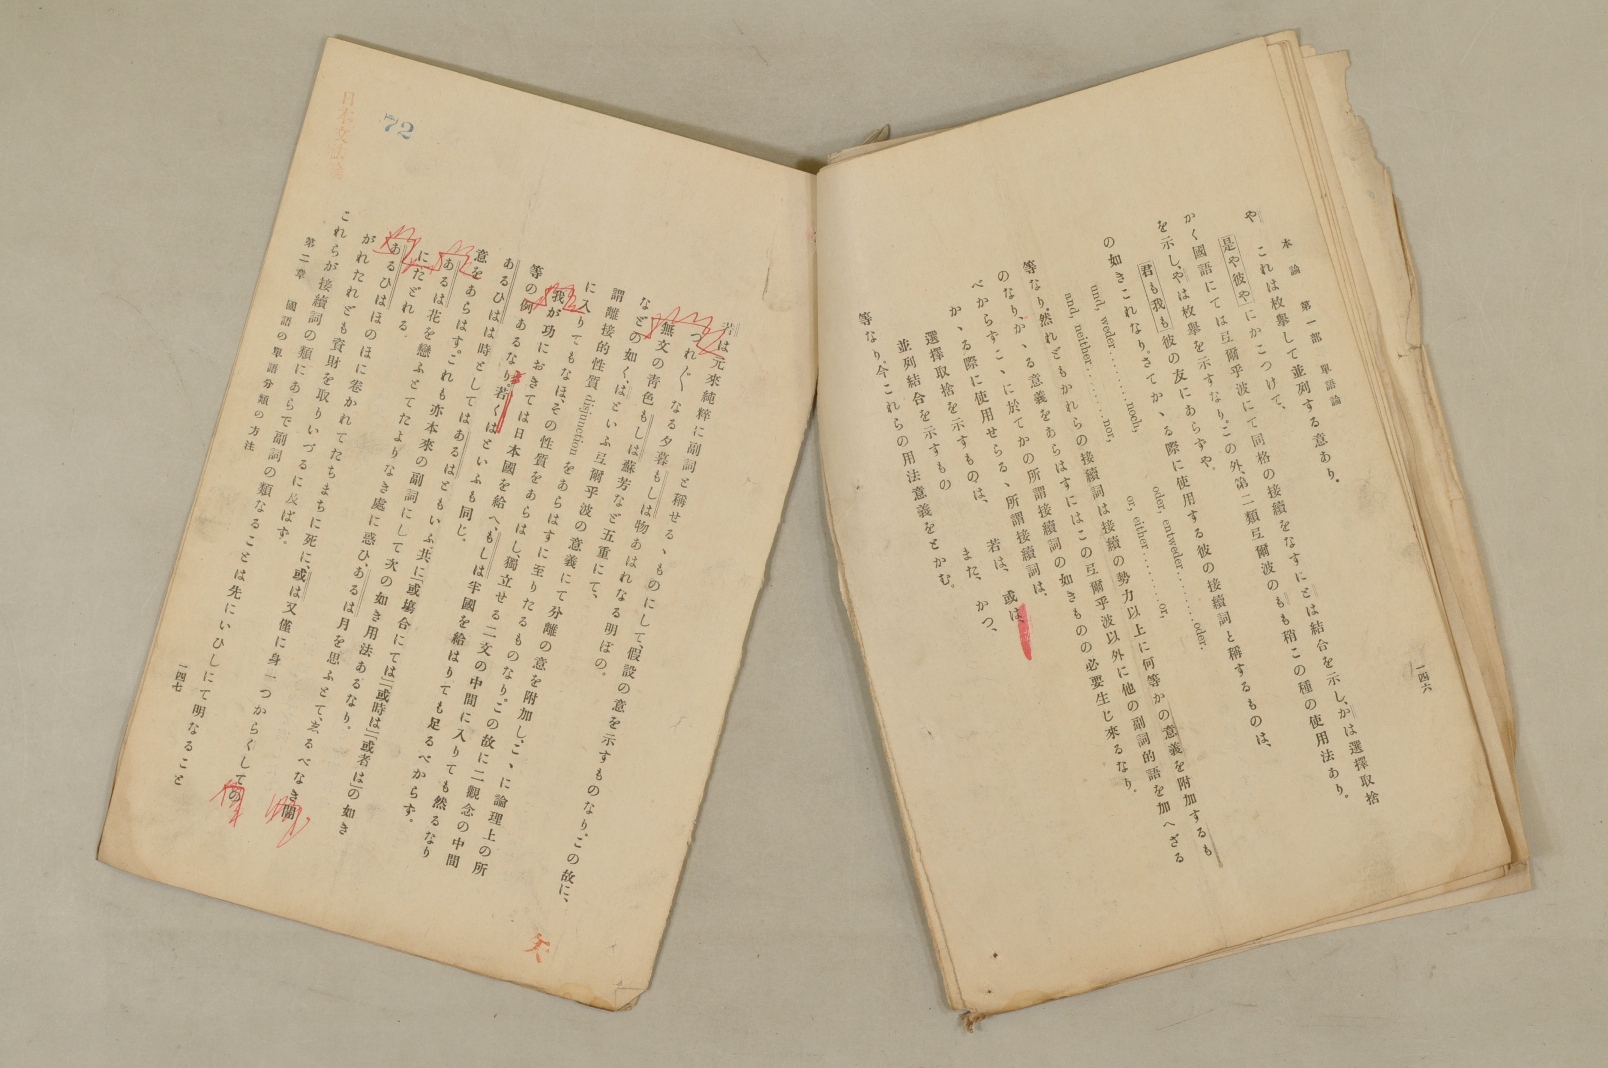 本論　第一部　單語論
一四六
や　これは枚擧して並列する意あり。
是や彼やにかこつけて、
かく國語にては弖爾乎波にて同格の接續をなすにとは結合を示し、かは選擇取捨
を示し、やは枚擧を示すなり。この外、第二類弖爾波のもも稍この種の使用法あり。
君も我も彼の友にあらずや。
の如きこれなり。さてかゝる際に使用する彼の接續詞と稱するものは、
und, weder.........noch, oder, entweder.........oder,
and, neither.........nor, or, either.........or,
等なり、然れどもかれらの接續詞は接續の勢力以上に何等かの意義を附加するも
のなり、かゝる意義をあらはすにはこの弖爾乎波以外に他の副詞的語を加へざる
べからずこゝに於てかの所謂接續詞の如きものの必要生じ來るなり。
かゝる際に使用せらるゝ所謂接續詞は、
選擇取捨を示すものは、　若は、　或は、
並列結合を示すもの　また、　かつ、
等なり。今これらの用法意義をとかむ。
72
若は元來純粹に副詞と稱せるゝものにして、假設の意を示すものなり。この故に、
つれ〴〵なる夕暮もしは物あはれなる明ぼの。
無文の靑色もしは蘇芳など五重にて、
などの如く、はといふ弖爾乎波の意義にて分離の意を附加し、こゝに論理上の所
謂離接的性質 disjunction をあらはすに至りたるものなり。この故に二觀念の中間
に入りてもなほ、その性質をあらはし、獨立せる二文の中間に入りても然るなり
我が功におきては日本國を給へ、もしは半國を給はりても足るべからず。
等の例あるなり。若くはといふも同じ。
あるひはは時としてはあるはともいふ共に「或塲合にては」「或時は」「或者は」の如き
意をあらはす。これも亦本來の副詞にして次の如き用法あるなり。
あるは花を戀ふとてたよりなき處に惑ひ、あるは月を思ふとて、なるべなき闇
にたどれる。
あるひはほのほに卷かれてたちまちに死に、或は又僅に身一つからくしての
がれたれども資財を取りいづるに及ばず。
これらが接續詞の類にあらで副詞の類なることは先にいひしにて明なること
第二章　國語の單語分類の方法
一四七